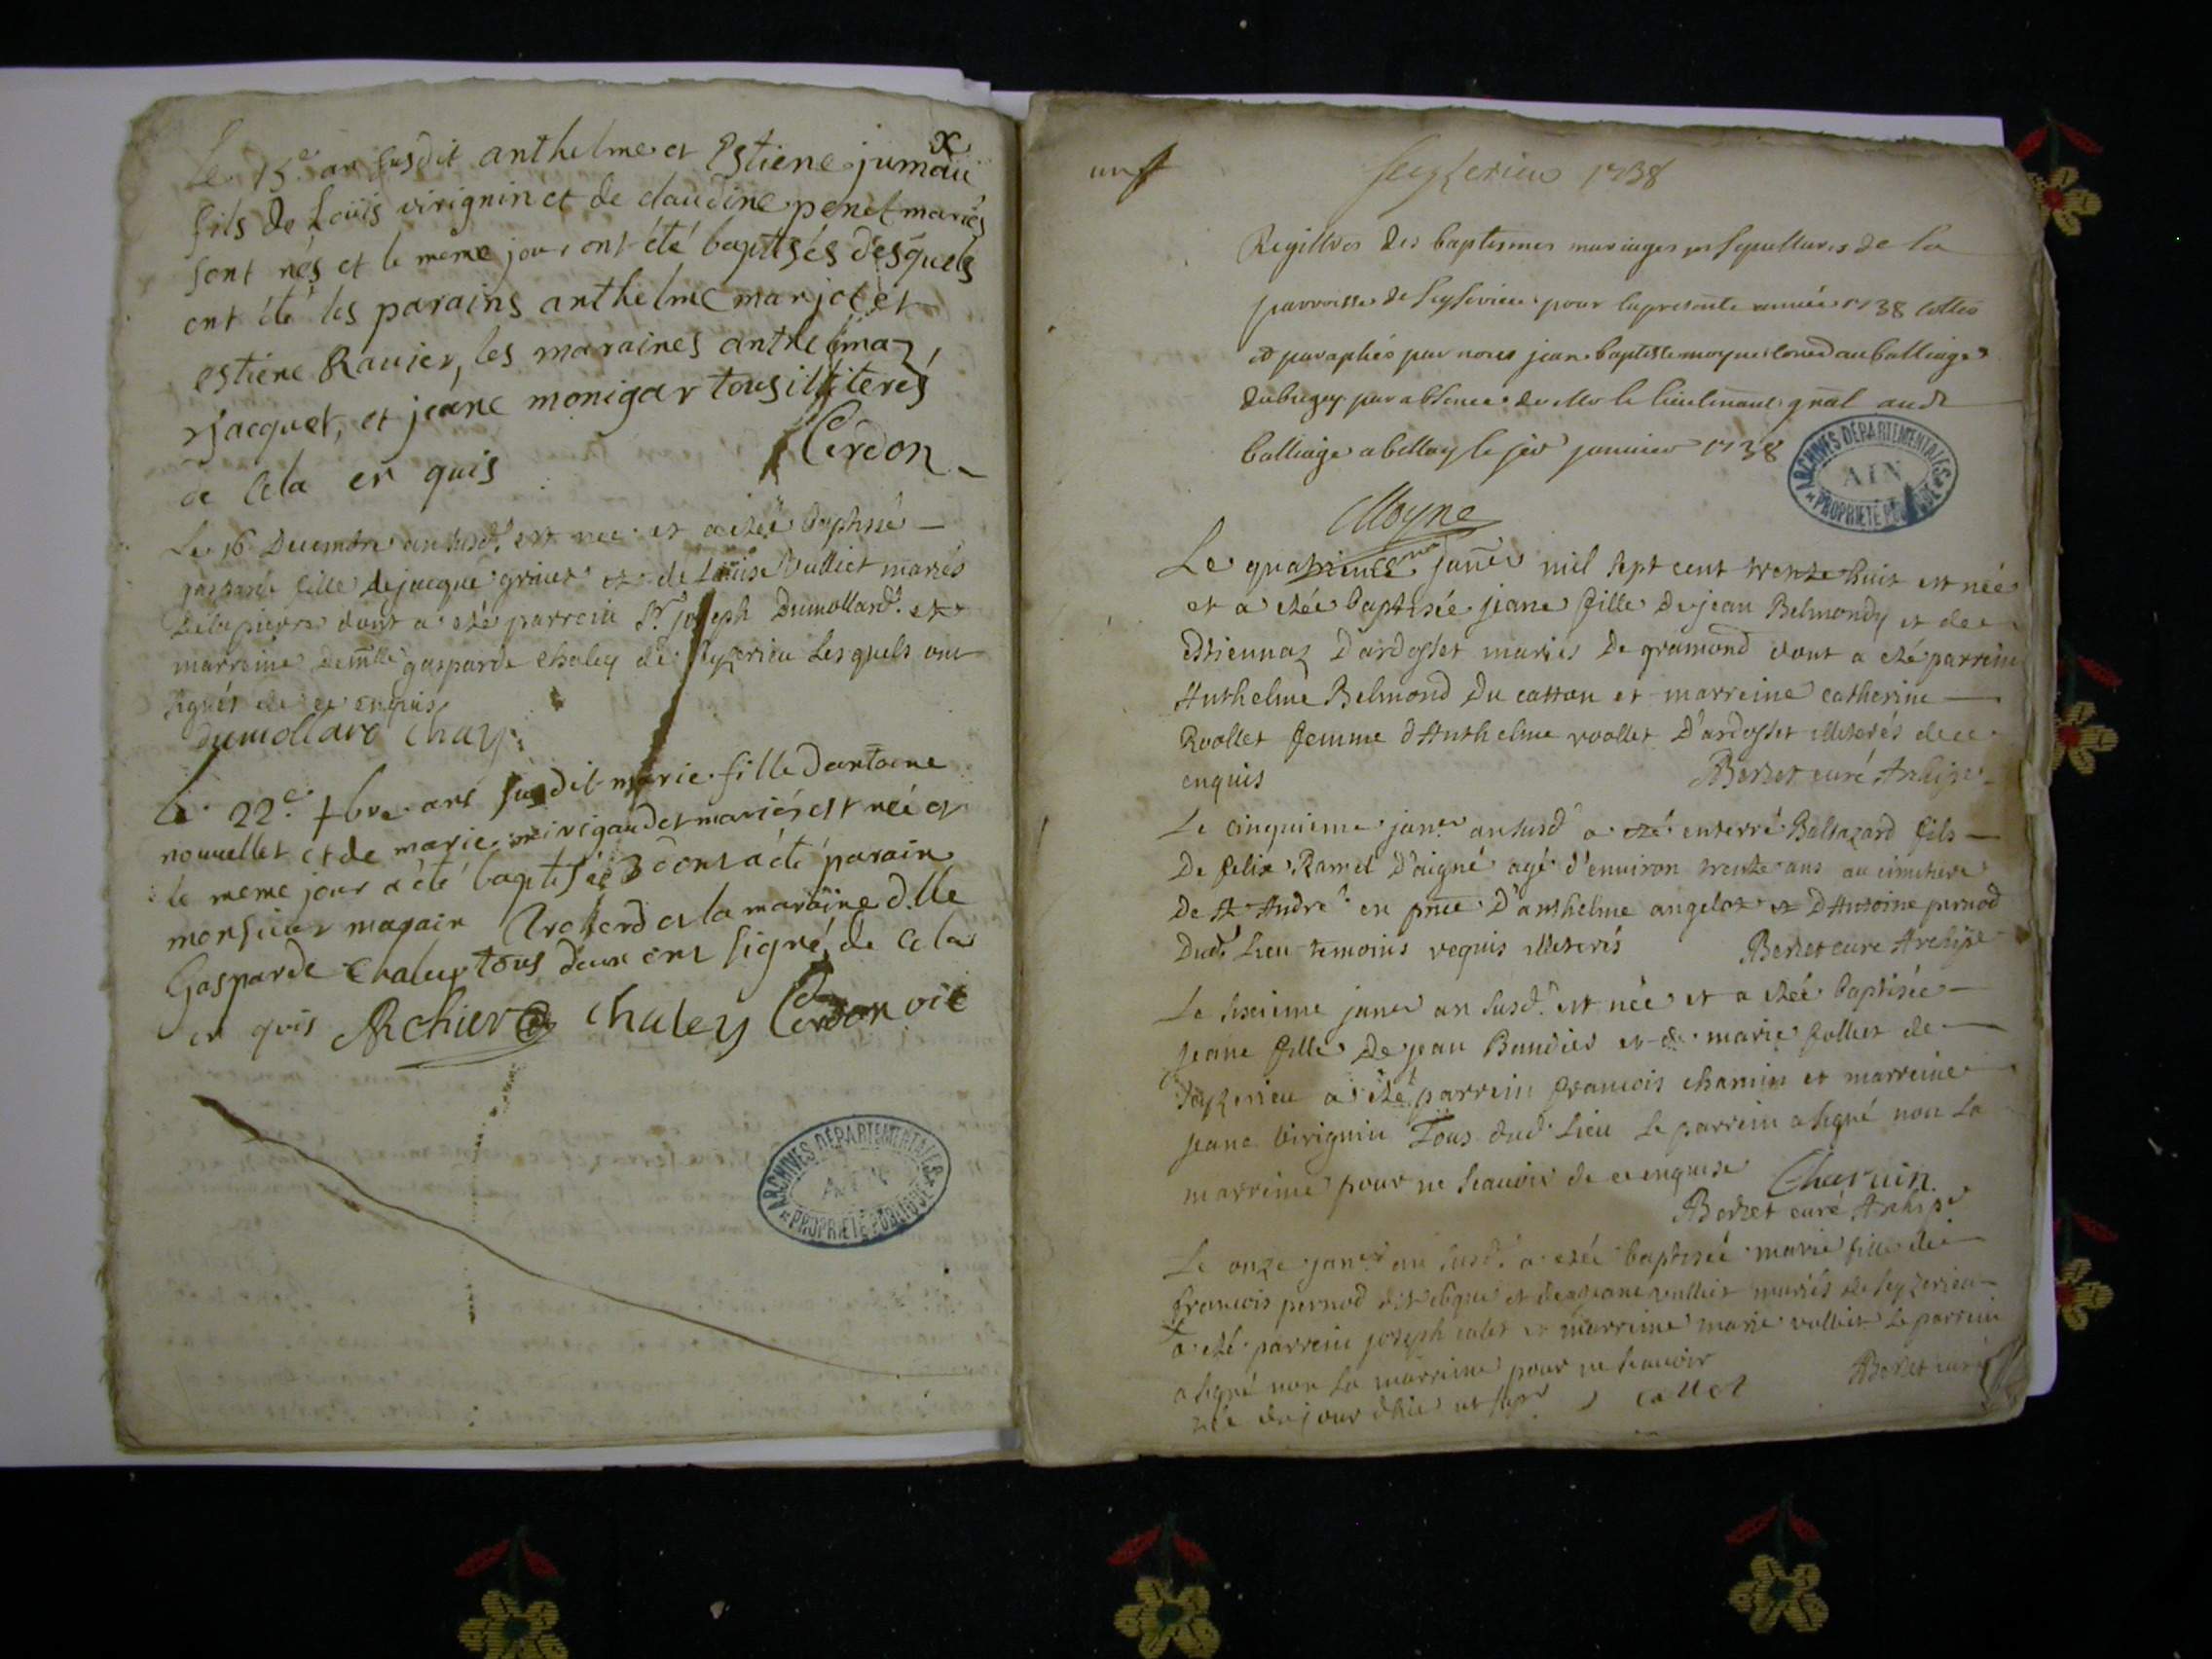 Le 15e an susdit anthelme et Estiene jumaux
fils de Loüis virignin et de claudine penet mariés
sont nés et le meme jour ont été baptisés desquels
ont été les parains anthelme marjot et
estiene Ravier, les maraines anthelmaz
jacquet, et jeane monigar tous illiterés
de cela en quis Cerdon
Le 16 Decembre an susd. est nee et a etéé baptisée
gasparde fille de jacque grivet et de Louise Vulliet mariés
Delapierre dont a eté parrein Sr. joseph Dumollard et
marreine demlle gasparde chaley de seyzerieu Lesquels ont
signés de ce enquis
Dumollard Chaley
Le 22e xbre ans susdit marie fille d'antoine
nouvellet et de marie mirigaudet mariés est néé et
le meme jour a été baptiséé dont a été parain
monsieur Archerd et la maraine d.lle
Gasparde Chaley tous deux ont signé, de cela
en quis Archerd Chaley Cerdon vic
un
Seyzerieu 1738
Registres des baptesmes mariages et sepultures de la
parroisse de Seyserieu pour la presente année 1738 cottés
et paraphés par nous jean baptiste moyne au balliage
du bugey par absence de Mr le lieutenant gnal aud
balliage a belley le janvier 1738
Moyne
Le quatrieme janer mil sept cent trente huit est née
et a etéé baptisée jeane fille de jean Belmondy et de
Estiennaz Dardosset mariés de gramond dont a eté parrein
Anthelme Belmond du catton et marreine catherine
Roollet femme d'Anthelme roollet D'ardosset illiterés de ce
enquis Borset curé Archipr
Le cinquieme janer an susd a eté enterré Baltazard fils
De felix Ramel D'aigné agé d'environ trente ans au cimetiere
De St André en pnce D'anthelme angelot et D'Antoine pernod
Dud. Lieu temoins requis illiterés Borset curé Archipr
Le sixieme janer an susd. est née et a etéé baptisée
jeane fille De jean Baudier et de marie folliet de
Seyzerieu a eté parrein francois charvin et marreine
jeane virignin Tous dud. Lieu Le parrein a signé non La
marreine pour ne scavoir de ce enquise Charvin
Borset curé Archipr
Le onze janer an susd. a etéé baptiséé marie fille de
francois pernod dit et de jeane vulliet mariés de seyzerieu
a eté parrein joseph calet et marreine marie vulliet Le parrein
a signé non La marreine pour ne scavoir
née du jour d'hier Callet Borset curé
ARCHIVES DÉPARTEMENTALES
AIN
PROPRIÉTÉ PUBLIQUE
ARCHIVES DÉPARTEMENTALES
AIN
PROPRIÉTÉ PUBLIQUE